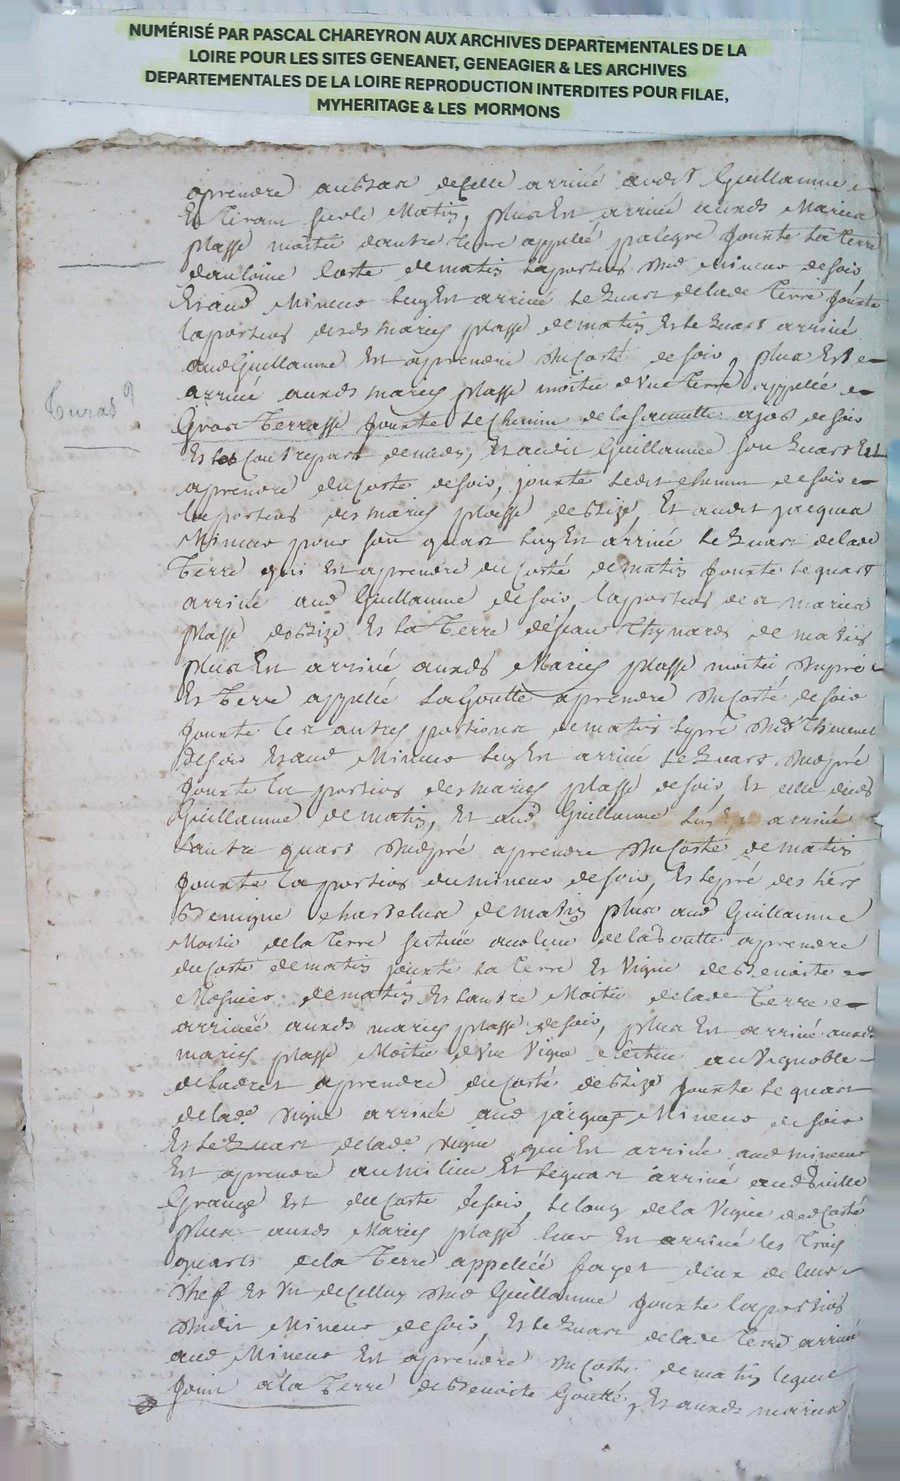 NUMÉRISÉ PAR PASCAL CHAREYRON AUX ARCHIVES DEPARTEMENTALES DE LA
LOIRE POUR LES SITES GENEANET, GENEAGIER & LES ARCHIVES
DEPARTEMENTALES DE LA LOIRE REPRODUCTION INTERDITES POUR FILAE,
MYHERITAGE & LES MORMONS
aprendre au bas decelle arrivé audt Guillaume
Et tirant sur le Matin, plus Est arrivé auxds Mariés
plasse moitié dautre terre appellée jouxte la terre
dematin la portion dud Mineur de soir
Et aud Mineur luy Est arrivé le quart delade Terre jouxte
la portion desds mariés plasse de matin Et le quart arrivé
aud Guillaume Est aprendre du costé de soir, plus Est
arrivé auxds mariés plasse moitié d'une Terre appellée
Gros Terrasse jouxte le Chemin de de soir
Et audit Guillaume son quart Est
aprendre du costé de soir, jouxte ledit chemin de soir
la portion des mariés plasse de bize Et audit jacques
Mineur pour son quart luy Est arrivé le quart delade
Terre qui Est aprendre du costé de matin jouxte le quart
arrivé aud Guillaume de soir, la portion des mariés
plasse de bize Et la Terre de jean de matin
plus Est arrivé auxds Mariés plasse moitié du pré
Et Terre appellée La Goutte aprendre du costé de soir
jouxte les autres portions de matin le pré dud
de soir Et aud Mineur luy Est arrivé le quart dud pré
jouxte la portion des mariés plasse de soir, Et celle dud
Guillaume de matin, Et aud Guillaume luy Est arrivé
Lautre quart dud pré aprendre du costé de matin
jouxte la portion du mineur de soir, Et le pré des hers
Benigne de matin plus aud Guillaume
Moitié de la Terre scituée au lieu de la Goutte aprendre
du costé de matin jouxte la Terre Et Vigne de Benoiste
de matin Et lautre Moitié delade Terre
arrivée auxds mariés plasse de soir, plus Est arrivé auxds
mariés plasse Moitié d'une Vigne scituée au Vignoble
aprendre du costé de bize jouxte le quart
delade vigne arrivée aud jacques Mineur de soir
Et le quart delade vigne qui Est arrivé aud mineur
Est aprendre au milieu Et le quart arrivé aud Guille
Grange Est du costé de soir, le long de la Vigne
plus auxds Mariés plasse leur Est arrivé les trois
quarts de la Terre appellée deux de leur
chef Et un decelluy dud Guillaume jouxte la portion
dudit Mineur de soir, Et le quart delade Terre arrivé
aud Mineur Est aprendre du costé de matin lequel
joint a la Terre de Benoiste Goutte, Et auxds mariés